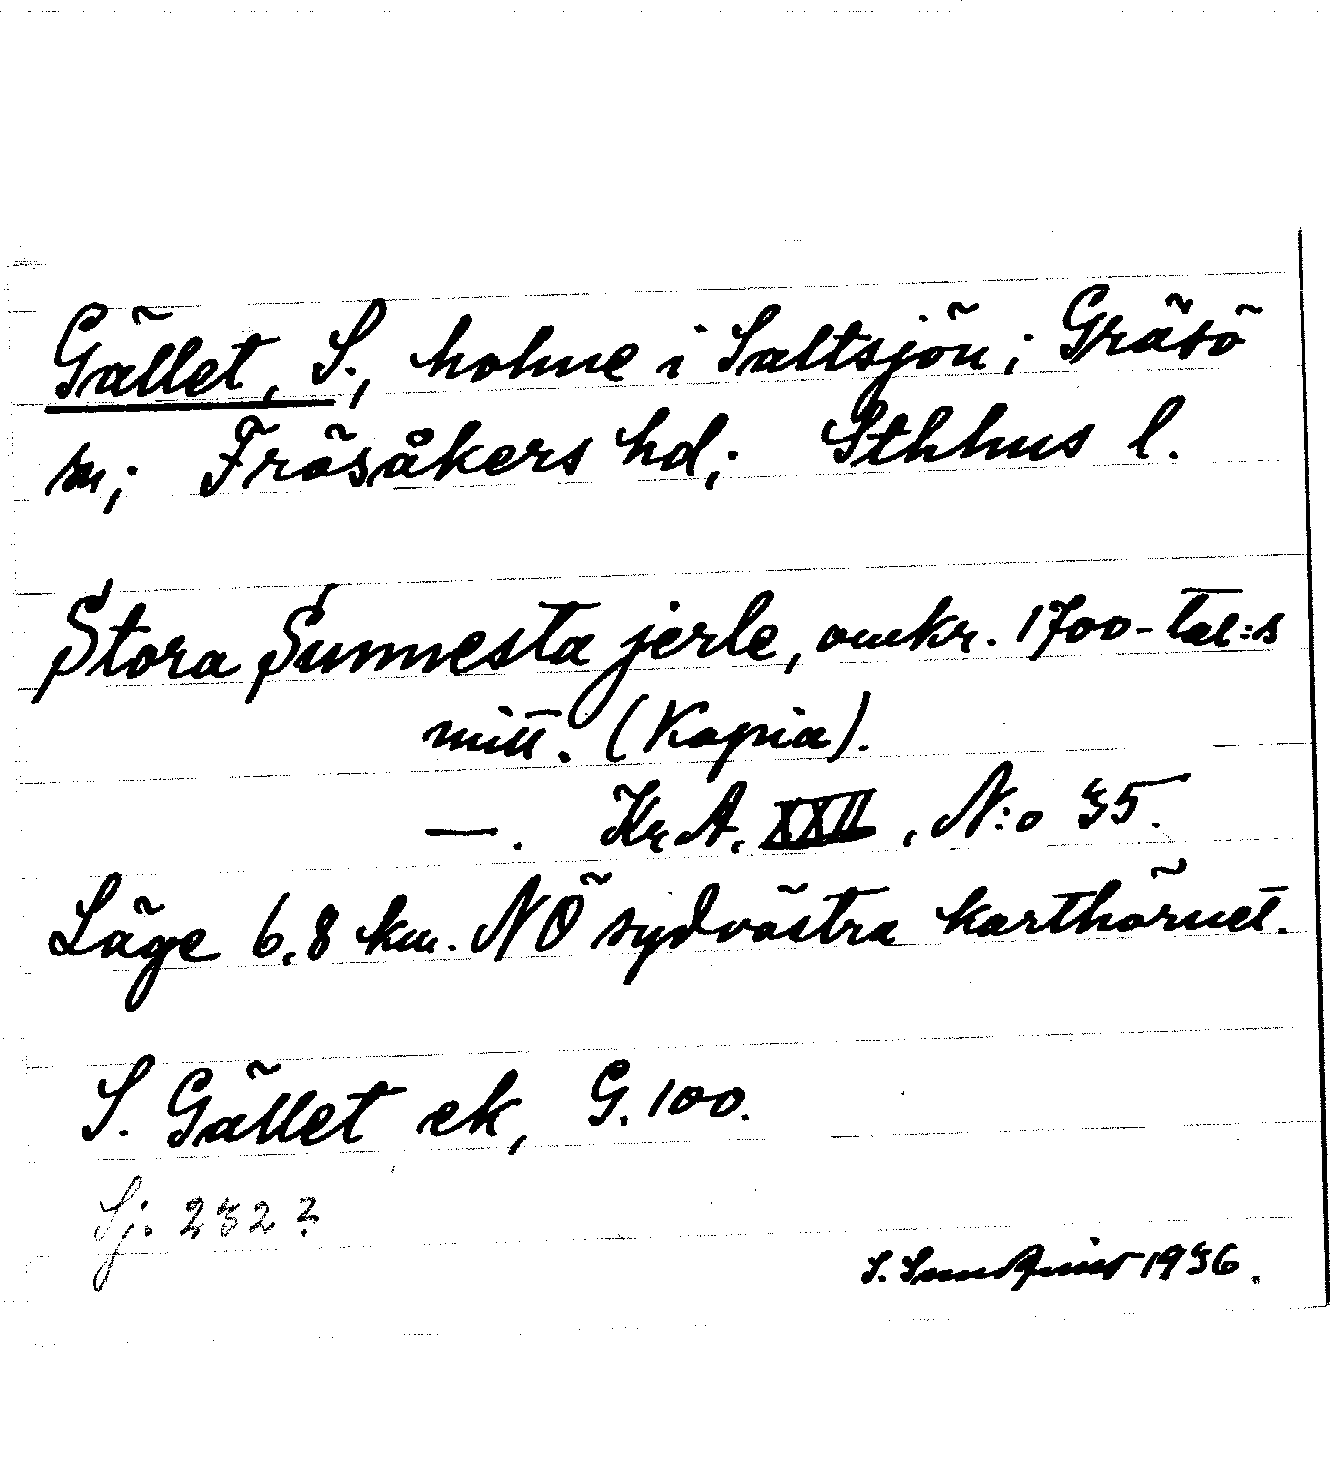 Gället, S., holme i Saltsjön; Gräsö
sn; Frösåkers hd; Sthlms l.
Stora Sunnesta jerle, omkr. 1700-tal:s
mitt. (Kopia).
—. Kr.A. XXII, N:o 35.
Läge 6,8 km. NÖ sydvästra karthörnet.
S. Gället ek, G. 100.
Sj. 232?
S. Sundquist 1936.